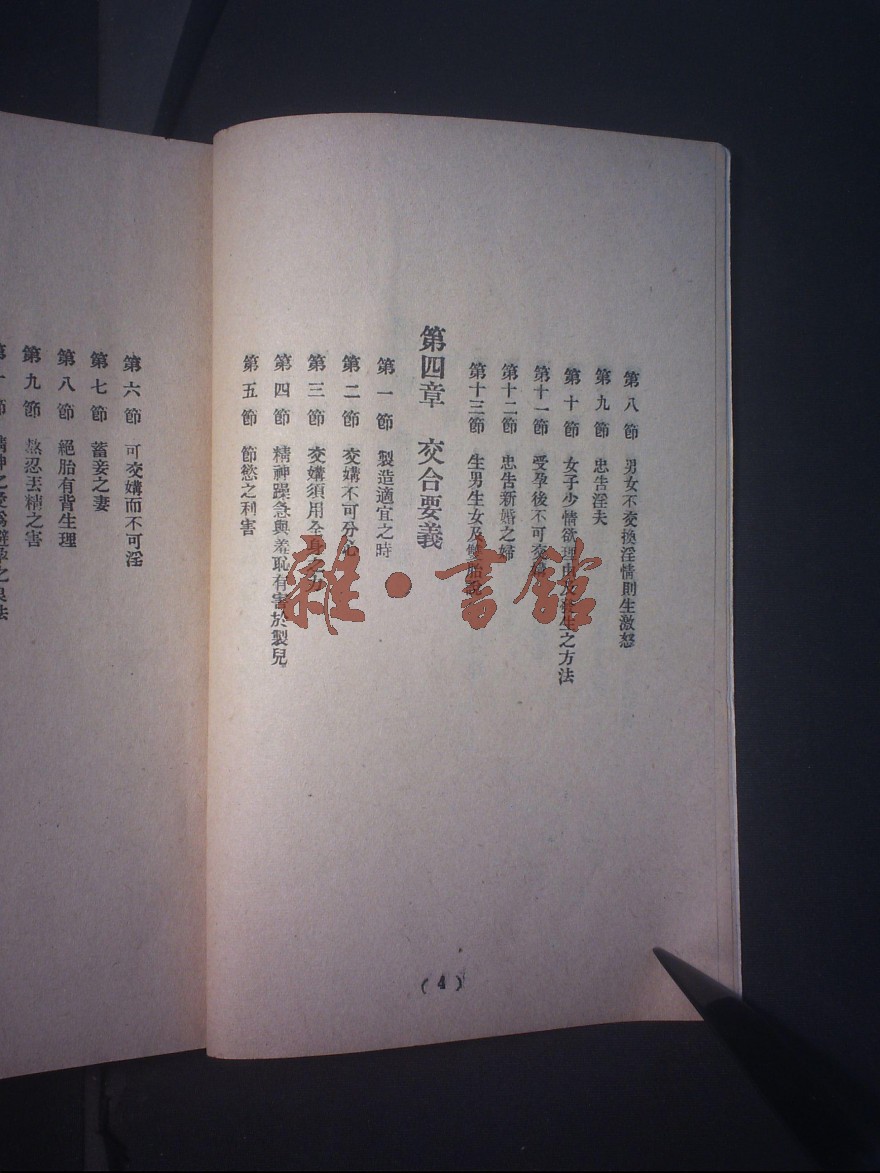 第八節 男女不交換淫情則生激怒
第九節 忠告淫夫
第十節 女子少情欲理由及發生之方法
第十一節 受孕後不可交媾
第十二節 忠告新婚之婦
第十三節 生男生女及雙胎說
第四章 交合要義
第一節 製造適宜之時
第二節 交媾不可分心
第三節 交媾須用全身之力
第四節 精神躁急與羞恥有害於製兒
第五節 節慾之利害
(4)
第六節 可交媾而不可淫
第七節 蓄妾之妻
第八節 絕胎有背生理
第九節 熬忍丟精之害
雜·書館